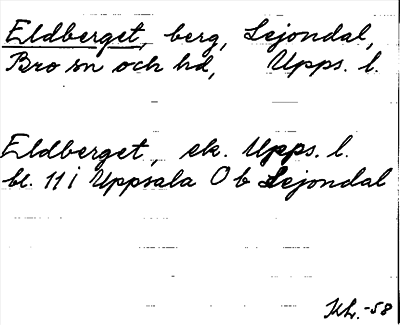 Eldberget, berg, Lejondal,
Bro sn och hd, Upps. l.
Eldberget, ek. Upps. l.
bl. 11 i Uppsala O b Lejondal
-58